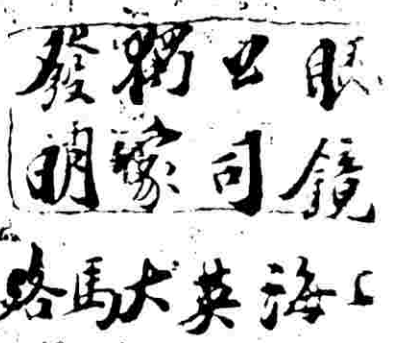 眼鏡
公司
獨
發明
上海英大馬路